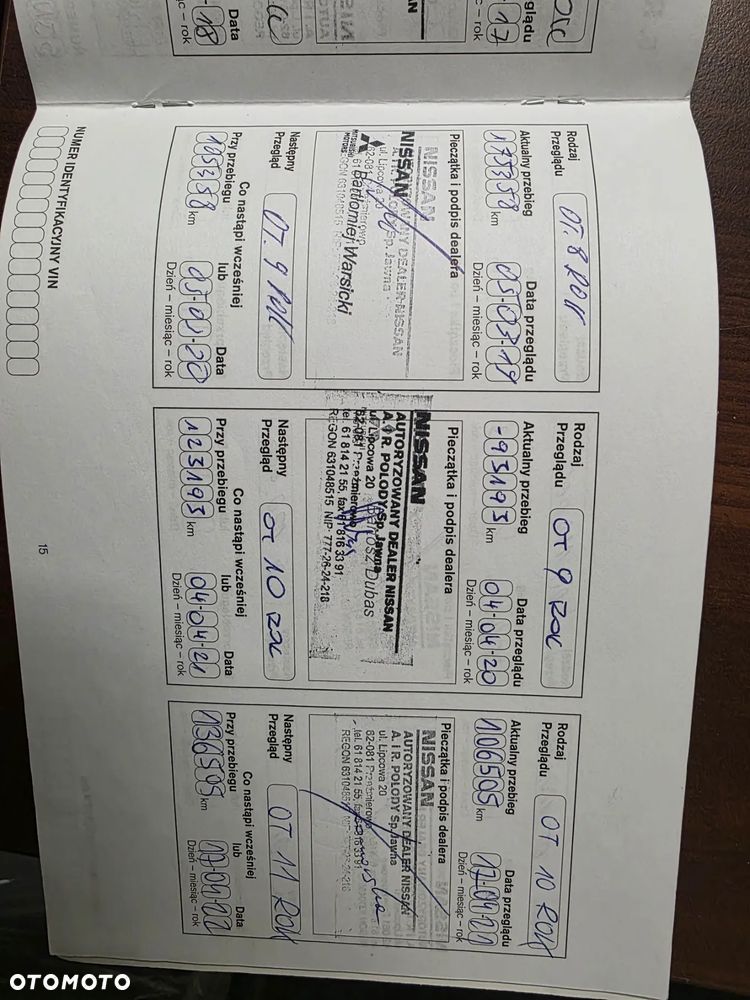 Data
18
Dzień – miesiąc – rok
17
Dzień – miesiąc – rok
Rodzaj
Przeglądu
OT. 8 ROK
Aktualny przebieg
Data przeglądu
175358 km
05-03-19
Dzień – miesiąc – rok
Pieczątka i podpis dealera
NISSAN
AUTORYZOWANY DEALER NISSAN
NISSAN
ul. Lipcowa 20
62-081 Przeźmierowo
Bartłomiej Warsicki
Następny
Przegląd
OT. 9 ROK
Co nastąpi wcześniej
Przy przebiegu
lub
Data
105358 km
05-03-20
Dzień – miesiąc – rok
Rodzaj
Przeglądu
OT 9 ROK
Aktualny przebieg
Data przeglądu
-93193
04-04-20
Dzień – miesiąc – rok
Pieczątka i podpis dealera
NISSAN
AUTORYZOWANY DEALER NISSAN
A. I R. POLODY Sp. Jawna
ul. Lipcowa 20
Bartosz Dubas
62-081 Przeźmierowo
tel. 61 814 21 55, fax 61 816 33 91
REGON 631048515 NIP: 777-26-24-218
Następny
Przegląd
OT 10 ROK
Co nastąpi wcześniej
Przy przebiegu
lub
Data
123193 km
04-04-21
Dzień – miesiąc – rok
Rodzaj
Przeglądu
OT 10 ROK
Aktualny przebieg
Data przeglądu
106505 km
17-04-21
Dzień – miesiąc – rok
Pieczątka i podpis dealera
NISSAN
AUTORYZOWANY DEALER NISSAN
A. I R. POLODY Sp. Jawna
ul. Lipcowa 20
62-081 Przeźmierowo
tel. 61 814 21 55, fax 61 816 33 91
REGON 631048515 NIP: 777-26-24-218
Następny
Przegląd
OT 11 ROK
Co nastąpi wcześniej
Przy przebiegu
lub
Data
136505 km
17-04-22
Dzień – miesiąc – rok
NUMER IDENTYFIKACYJNY VIN
15
OTOMOTO